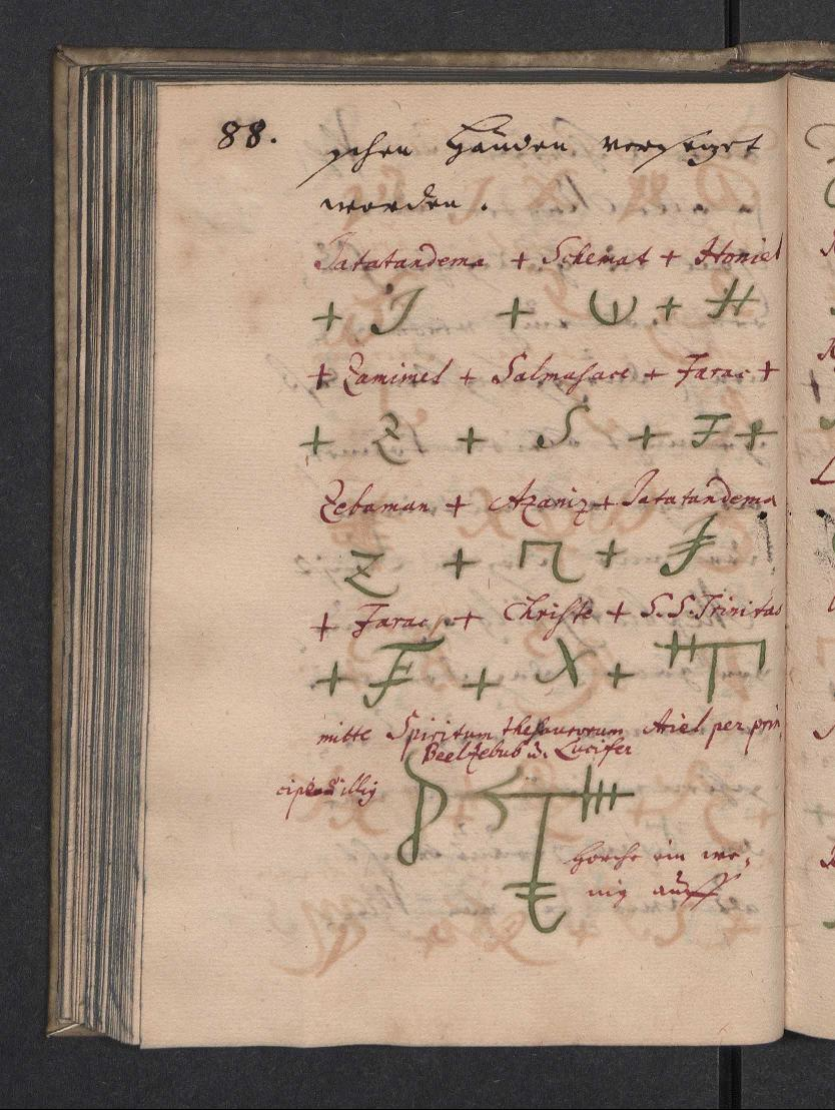 88.
schen Händen versorget
worden.
Tatatandema + Schemat + Honiel
+ J + + H
+ Zamimel + Salmasace + Farac +
+ Z + S + F +
Zebaman + Azaniz + Tatatandema
Z + + F
+ Farac + Christe + S.S. Trinitas
+ F + X +
mitte Spiritum thesaurorum Ariel per prin
Beelzebub u. Lucifer
horche ein we-
nig auff